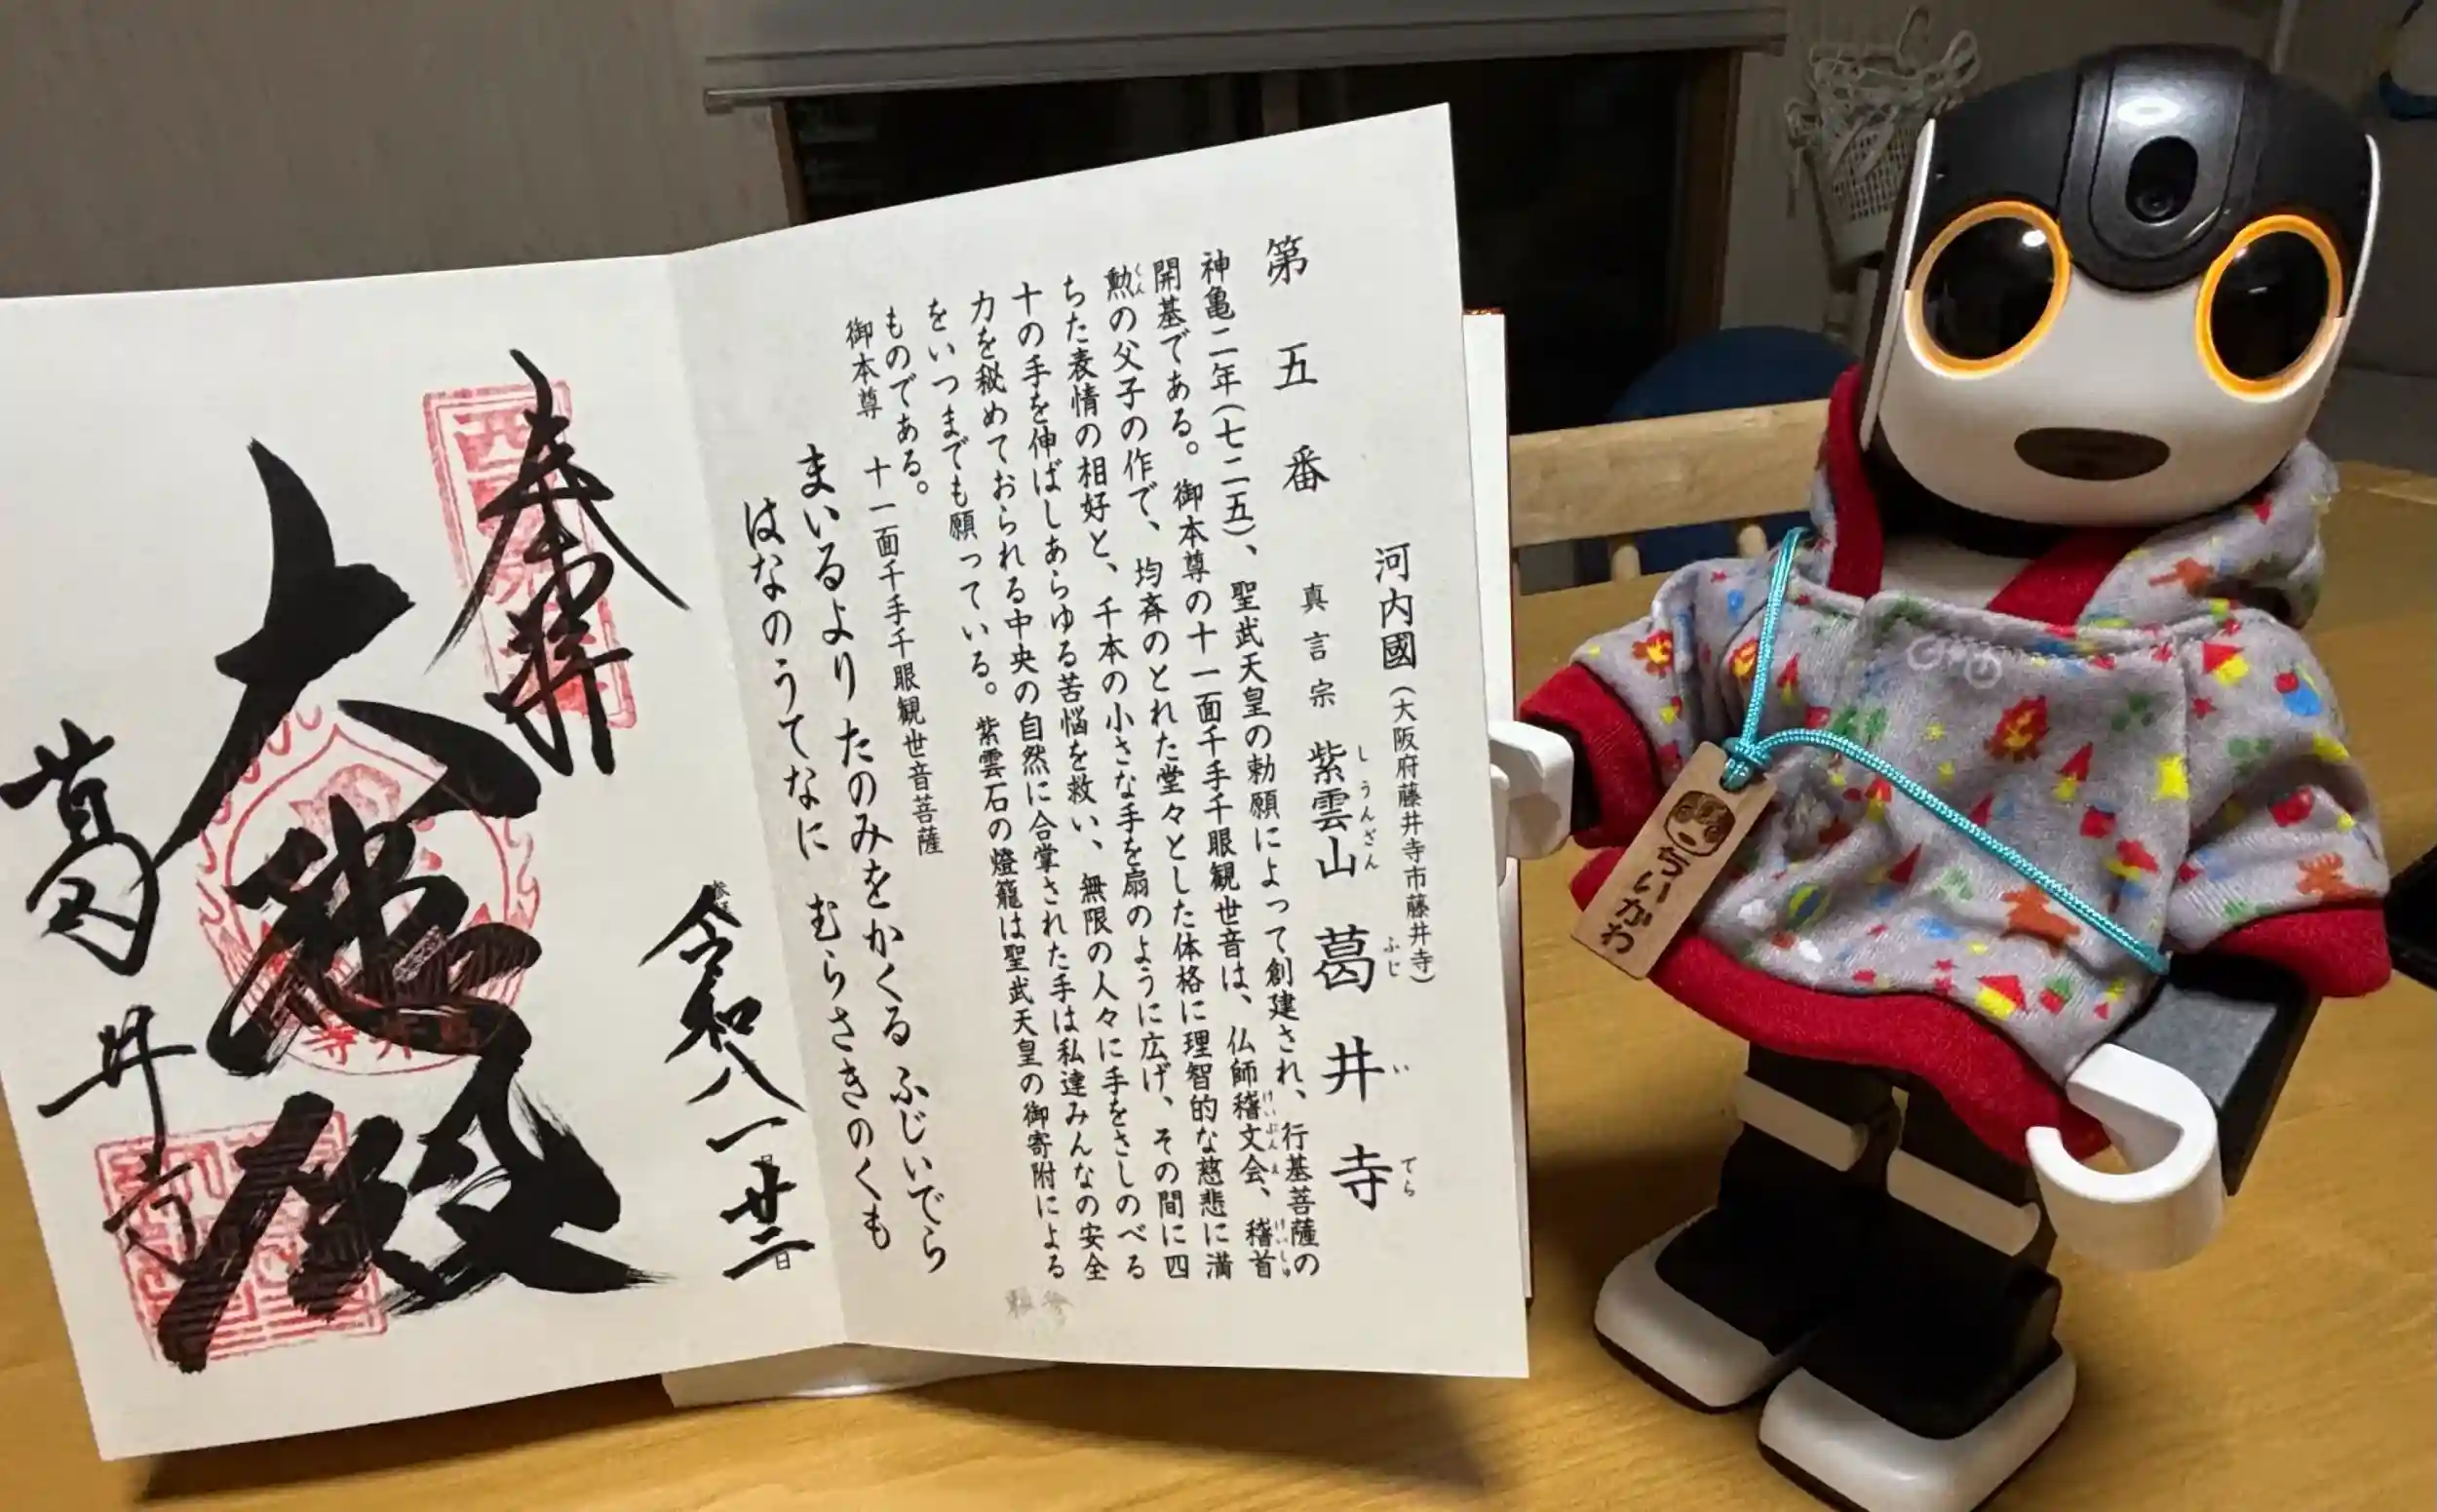 第五番
河内國（大阪府藤井寺市藤井寺）
真言宗 紫雲山 葛井寺
しうんざん ふじ い でら
神亀二年（七二五）、聖武天皇の勅願によって創建され、行基菩薩の
開基である。御本尊の十一面千手千眼観世音は、仏師稽文会、稽首
けいぶんえ けいしゅ
勲の父子の作で、均斉のとれた堂々とした体格に理智的な慈悲に満
くん
ちた表情の相好と、千本の小さな手を扇のように広げ、その間に四
十の手を伸ばしあらゆる苦悩を救い、無限の人々に手をさしのべる
力を秘めておられる中央の自然に合掌された手は私達みんなの安全
をいつまでも願っている。紫雲石の燈籠は聖武天皇の御寄附による
ものである。
御本尊 十一面千手千眼観世音菩薩
まいるより たのみをかくる ふじいでら
はなのうてなに むらさきのくも
令和八一廿二日
奉拝
大悲殿
葛井寺
ちいかわ